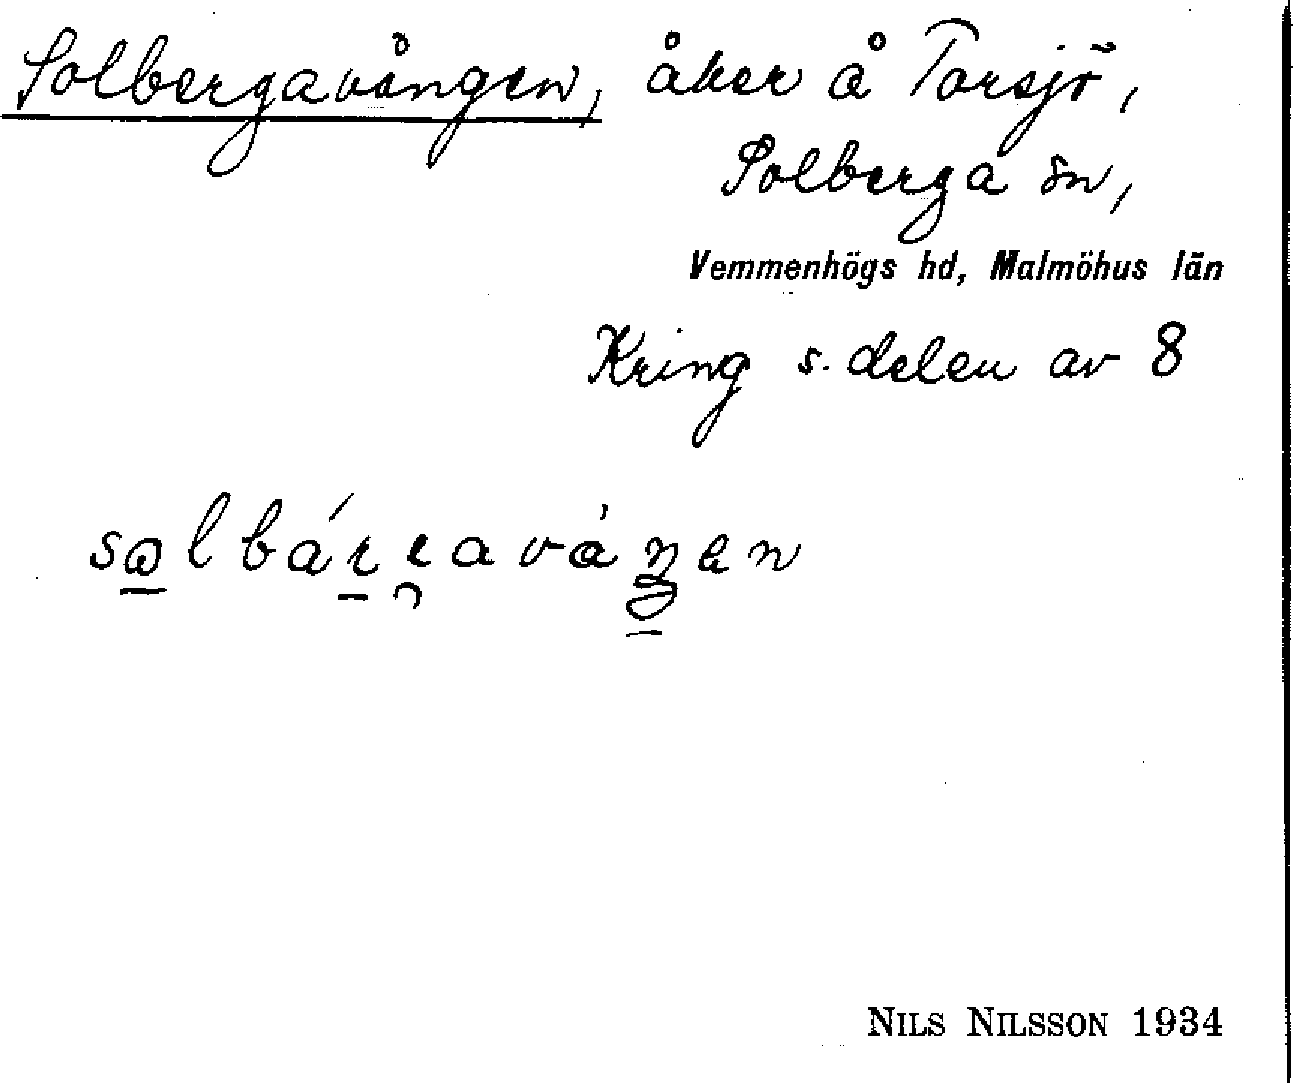 Solbergavången, åker å Torsjö,
Solberga sn,
Vemmenhögs hd, Malmöhus län
Kring s. delen av 8
NILS NILSSON 1934